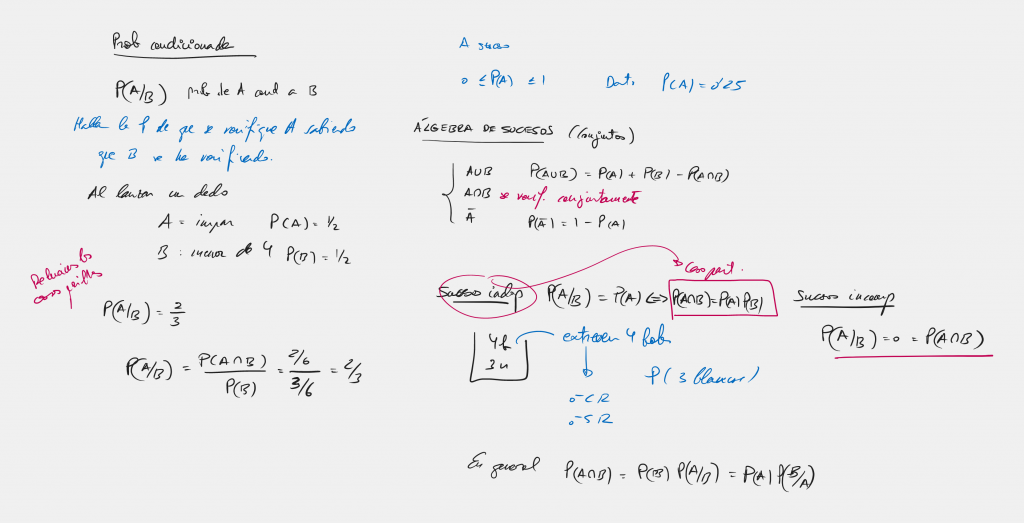 Prob condicionada
P(A/B) prob de A cond a B
Hallar la P de que se verifique A sabiendo
que B se ha verificado.
Al lanzar un dado
A = impar P(A) = 1/2
B : menor de 4 P(B) = 1/2
casos posibles
P(A/B) = 2/3
P(A/B) = P(A∩B)/P(B) = 2/6 / 3/6 = 2/3
A suceso
0 ≤ P(A) ≤ 1 P(A) = 0'25
ÁLGEBRA DE SUCESOS (Conjuntos)
A∪B P(A∪B) = P(A) + P(B) - P(A∩B)
A∩B se verif. conjuntamente
Ā P(Ā) = 1 - P(A)
Caso part.
Sucesos indep P(A/B) = P(A) ⇔ P(A∩B) = P(A) P(B)
4b
3n
extraen 4 bolas
P(3 blancas)
- C R
- S R
Sucesos incomp
P(A/B) = 0 = P(A∩B)
En general P(A∩B) = P(B) P(A/B) = P(A) P(B/A)